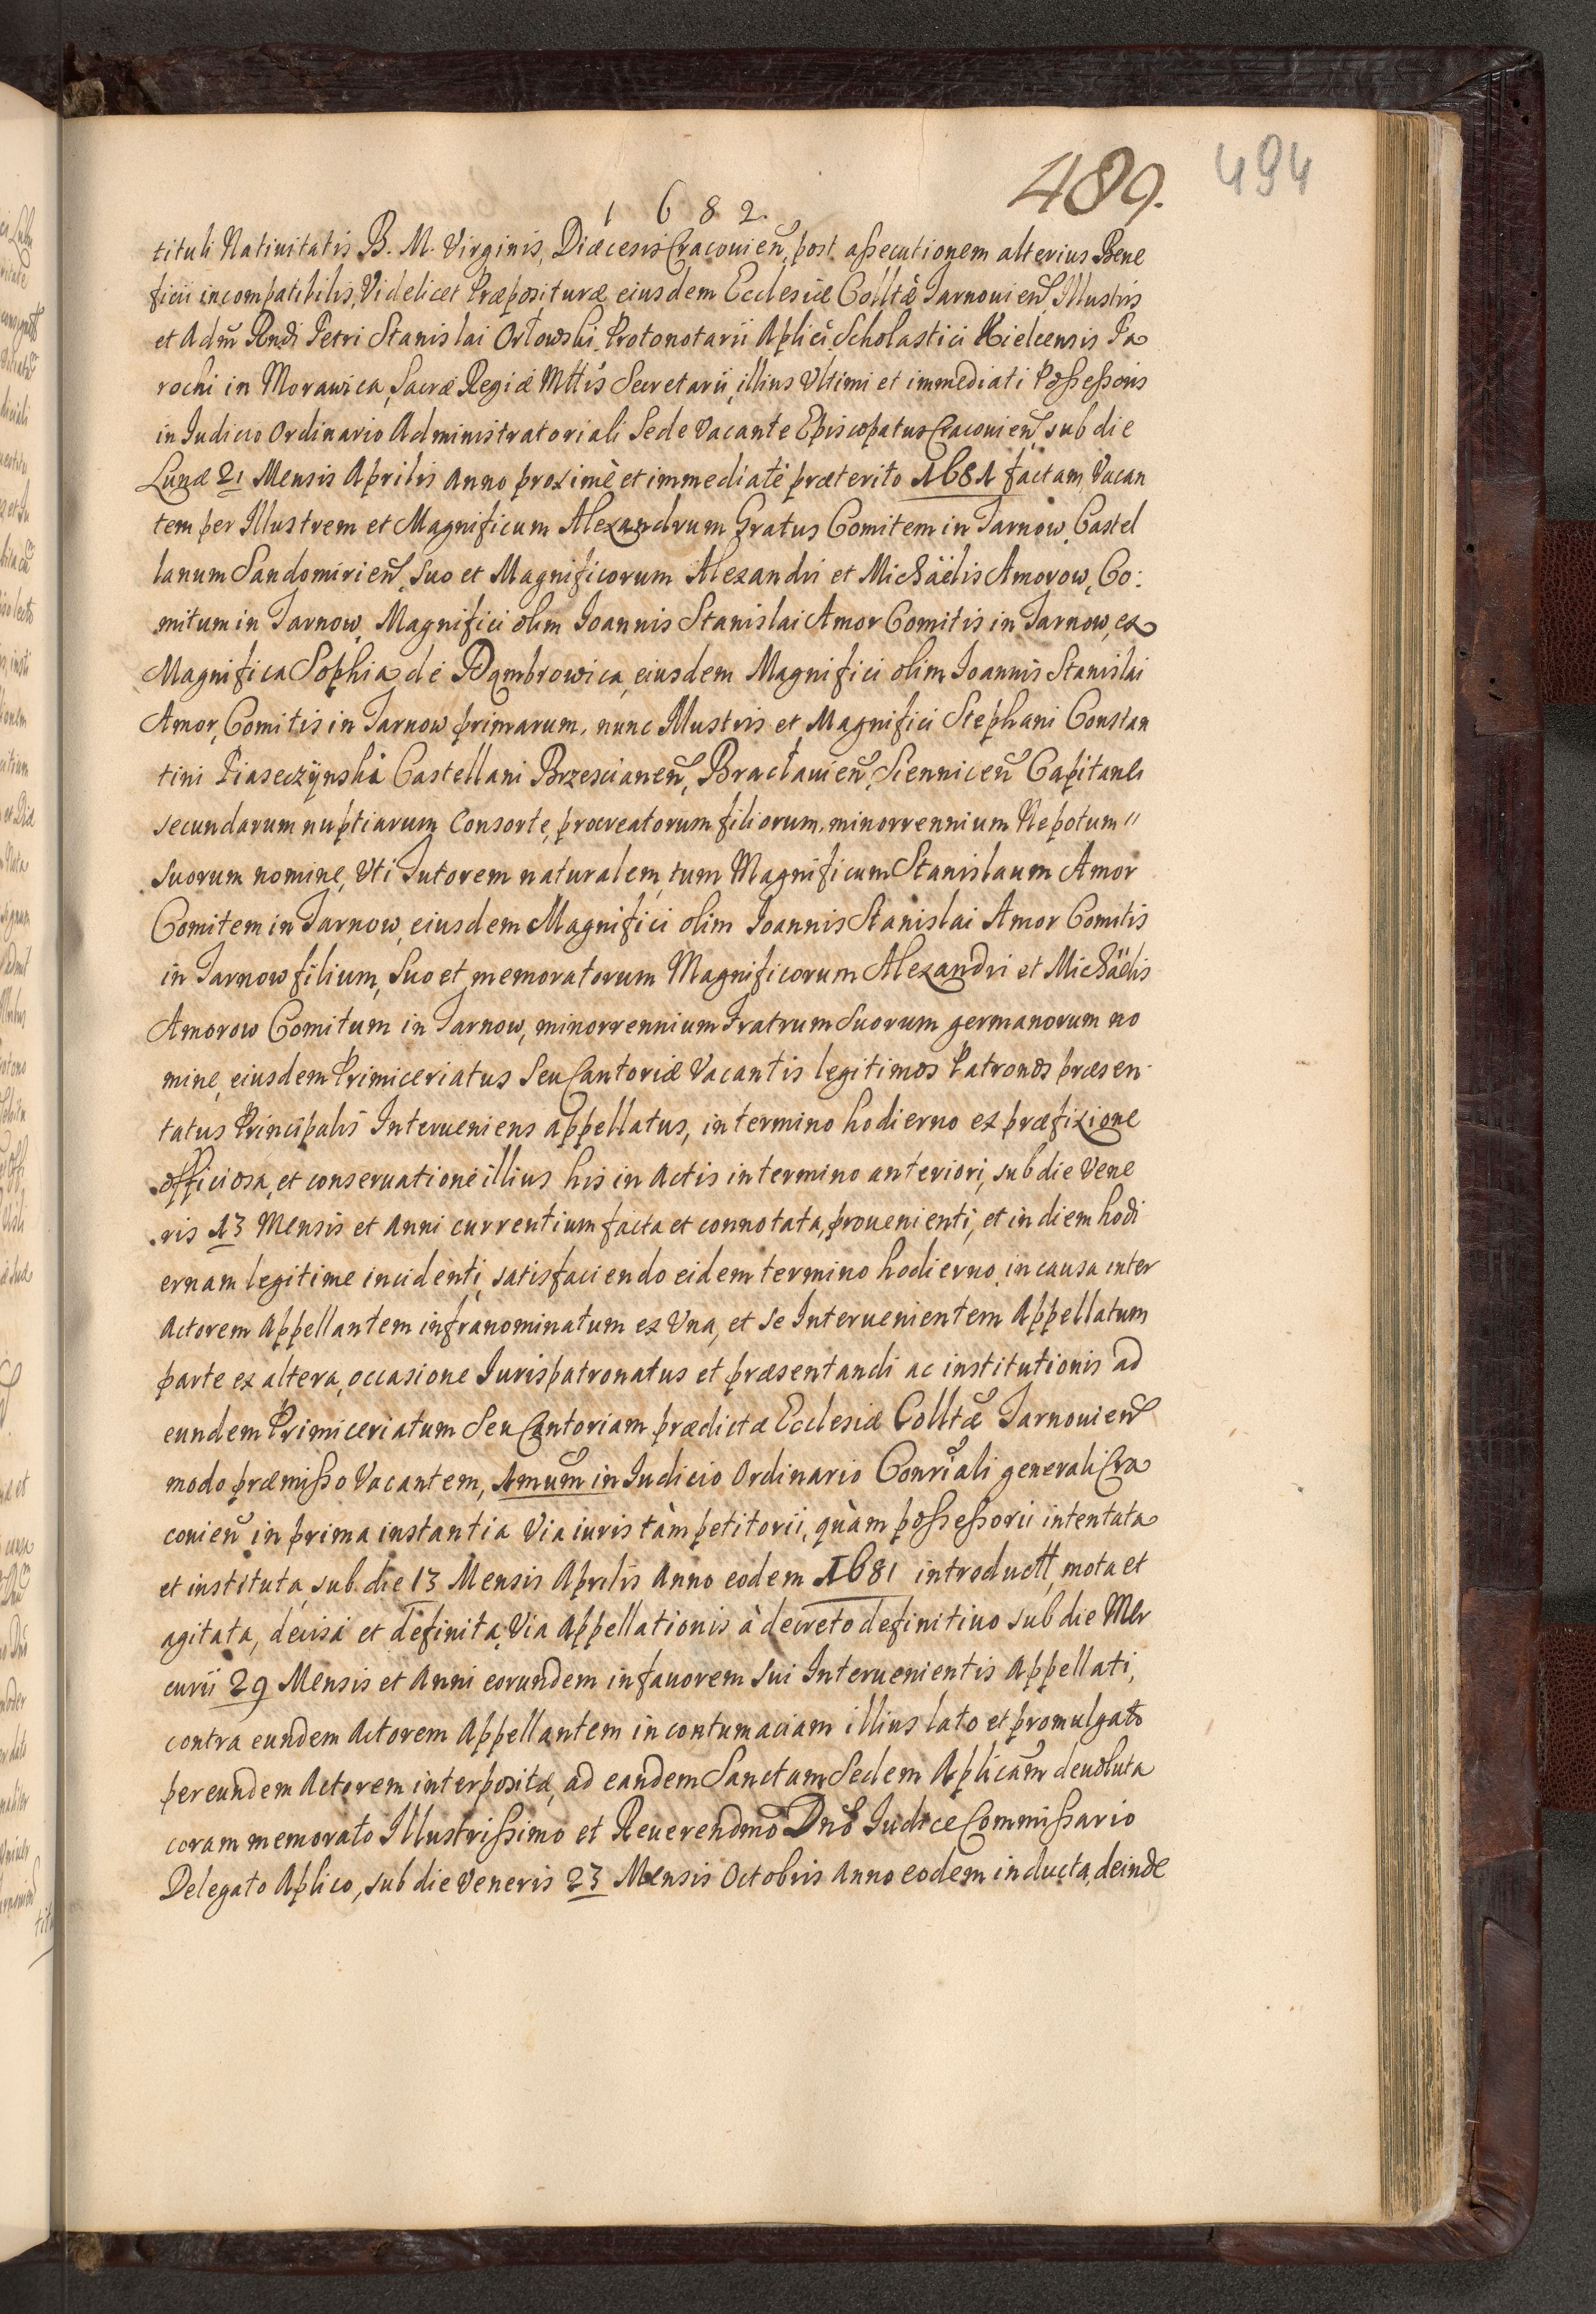 489.
494
1 6 8 2.
tituli Natiuitatis B. M. Virginis, Diæcesis Cracouień, post aßecutionem alterius Bene
ficii incompatibilis, Videlicet Præposituræ eiusdem Ecclesiæ Colltæ Tarnouień, Illustris
et Adm̃ Rndi Petri Stanislai Orłowski, Protonotarii Aplici, Scholastici Kielcensis Pa
rochi in Morawica, Sacræ Regiæ Mttis Secretarii, illius Vltimi et immediati Poßeßoris
in Iudicio Ordinario Administratoriali Sede Vacante Episcopatus Cracouień, sub die
Lunæ 21 Mensis Aprilis Anno proximè et immediatè præterito 1681 factam, Vacan
tem per Illustrem et Magnificum Alexandrum Gratus Comitem in Tarnow, Castel
lanum Sandomirień, Suo et Magnificorum Alexandri et Michäelis Amorow, Co:
mitum in Tarnow, Magnifici olim Ioannis Stanislai Amor Comitis in Tarnow, ex
Magnifica Sophia de Dąmbrowica, eiusdem Magnifici olim Ioannis Stanislai
Amor, Comitis in Tarnow primarum, nunc Illustris et Magnifici Stephani Constan
tini Piaseczÿnski Castellani Brzescianeń, Bracłauień, Sienniceń Capitanei
secundarum nuptiarum Consorte, procreatorum filiorum, minorrennium Nepotum "
Suorum nomine, Vti Tutorem naturalem, tum Magnificum Stanislaum Amor
Comitem in Tarnow, eiusdem Magnifici olim Ioannis Stanislai Amor Comitis
in Tarnow filium, Suo et memoratorum Magnificorum Alexandri et Michäelis
Amorow Comitum in Tarnow, minorrennium Fratrum Suorum germanorum no
mine, eiusdem Primiceriatus Seu Cantoriæ Vacantis legitimos Patronos præsen
tatus Principalis Interueniens appellatus, in termino hodierno ex præfixione
officiosa, et conseruatione illius his in Actis in termino anteriori, sub die Vene
ris 13 Mensis et Anni currentium facta et connotata, prouenienti, et in diem hodi
ernam legitime incidenti, satisfaciendo eidem termino hodierno, in causa inter
Actorem Appellantem infranominatum ex Vna, et se Interuenientem Appellatum
parte ex altera, occasione Iurispatronatus et præsentandi ac institutionis ad
eundem Primiceriatum Seu Cantoriam prædictæ Ecclesiæ Colltæ Tarnouień
modo præmißo Vacantem, 1mum in Iudicio Ordinario Conriali generali Cra
couień in prima instantia Via iuris tàm petitorii, quàm poßeßorii intentata
et instituta, sub die 13 Mensis Aprilis Anno eodem 1681 introductt, mota et
agitata, decisa et definita, Via Appellationis à decreto definitiuo sub die Mer
curii 29 Mensis et Anni eorundem in fauorem sui Interuenientis Appellati,
contra eundem Actorem Appellantem in contumaciam illius lato et promulgato
per eundem Actorem interpositæ, ad eandem Sanctam Sedem Aplicam deuoluta
coram memorato Illustrißimo et Reuerendmo Dno Iudice Commißario
Delegato Aplico, sub die Veneris 23 Mensis Octobris Anno eodem inducta, deinde